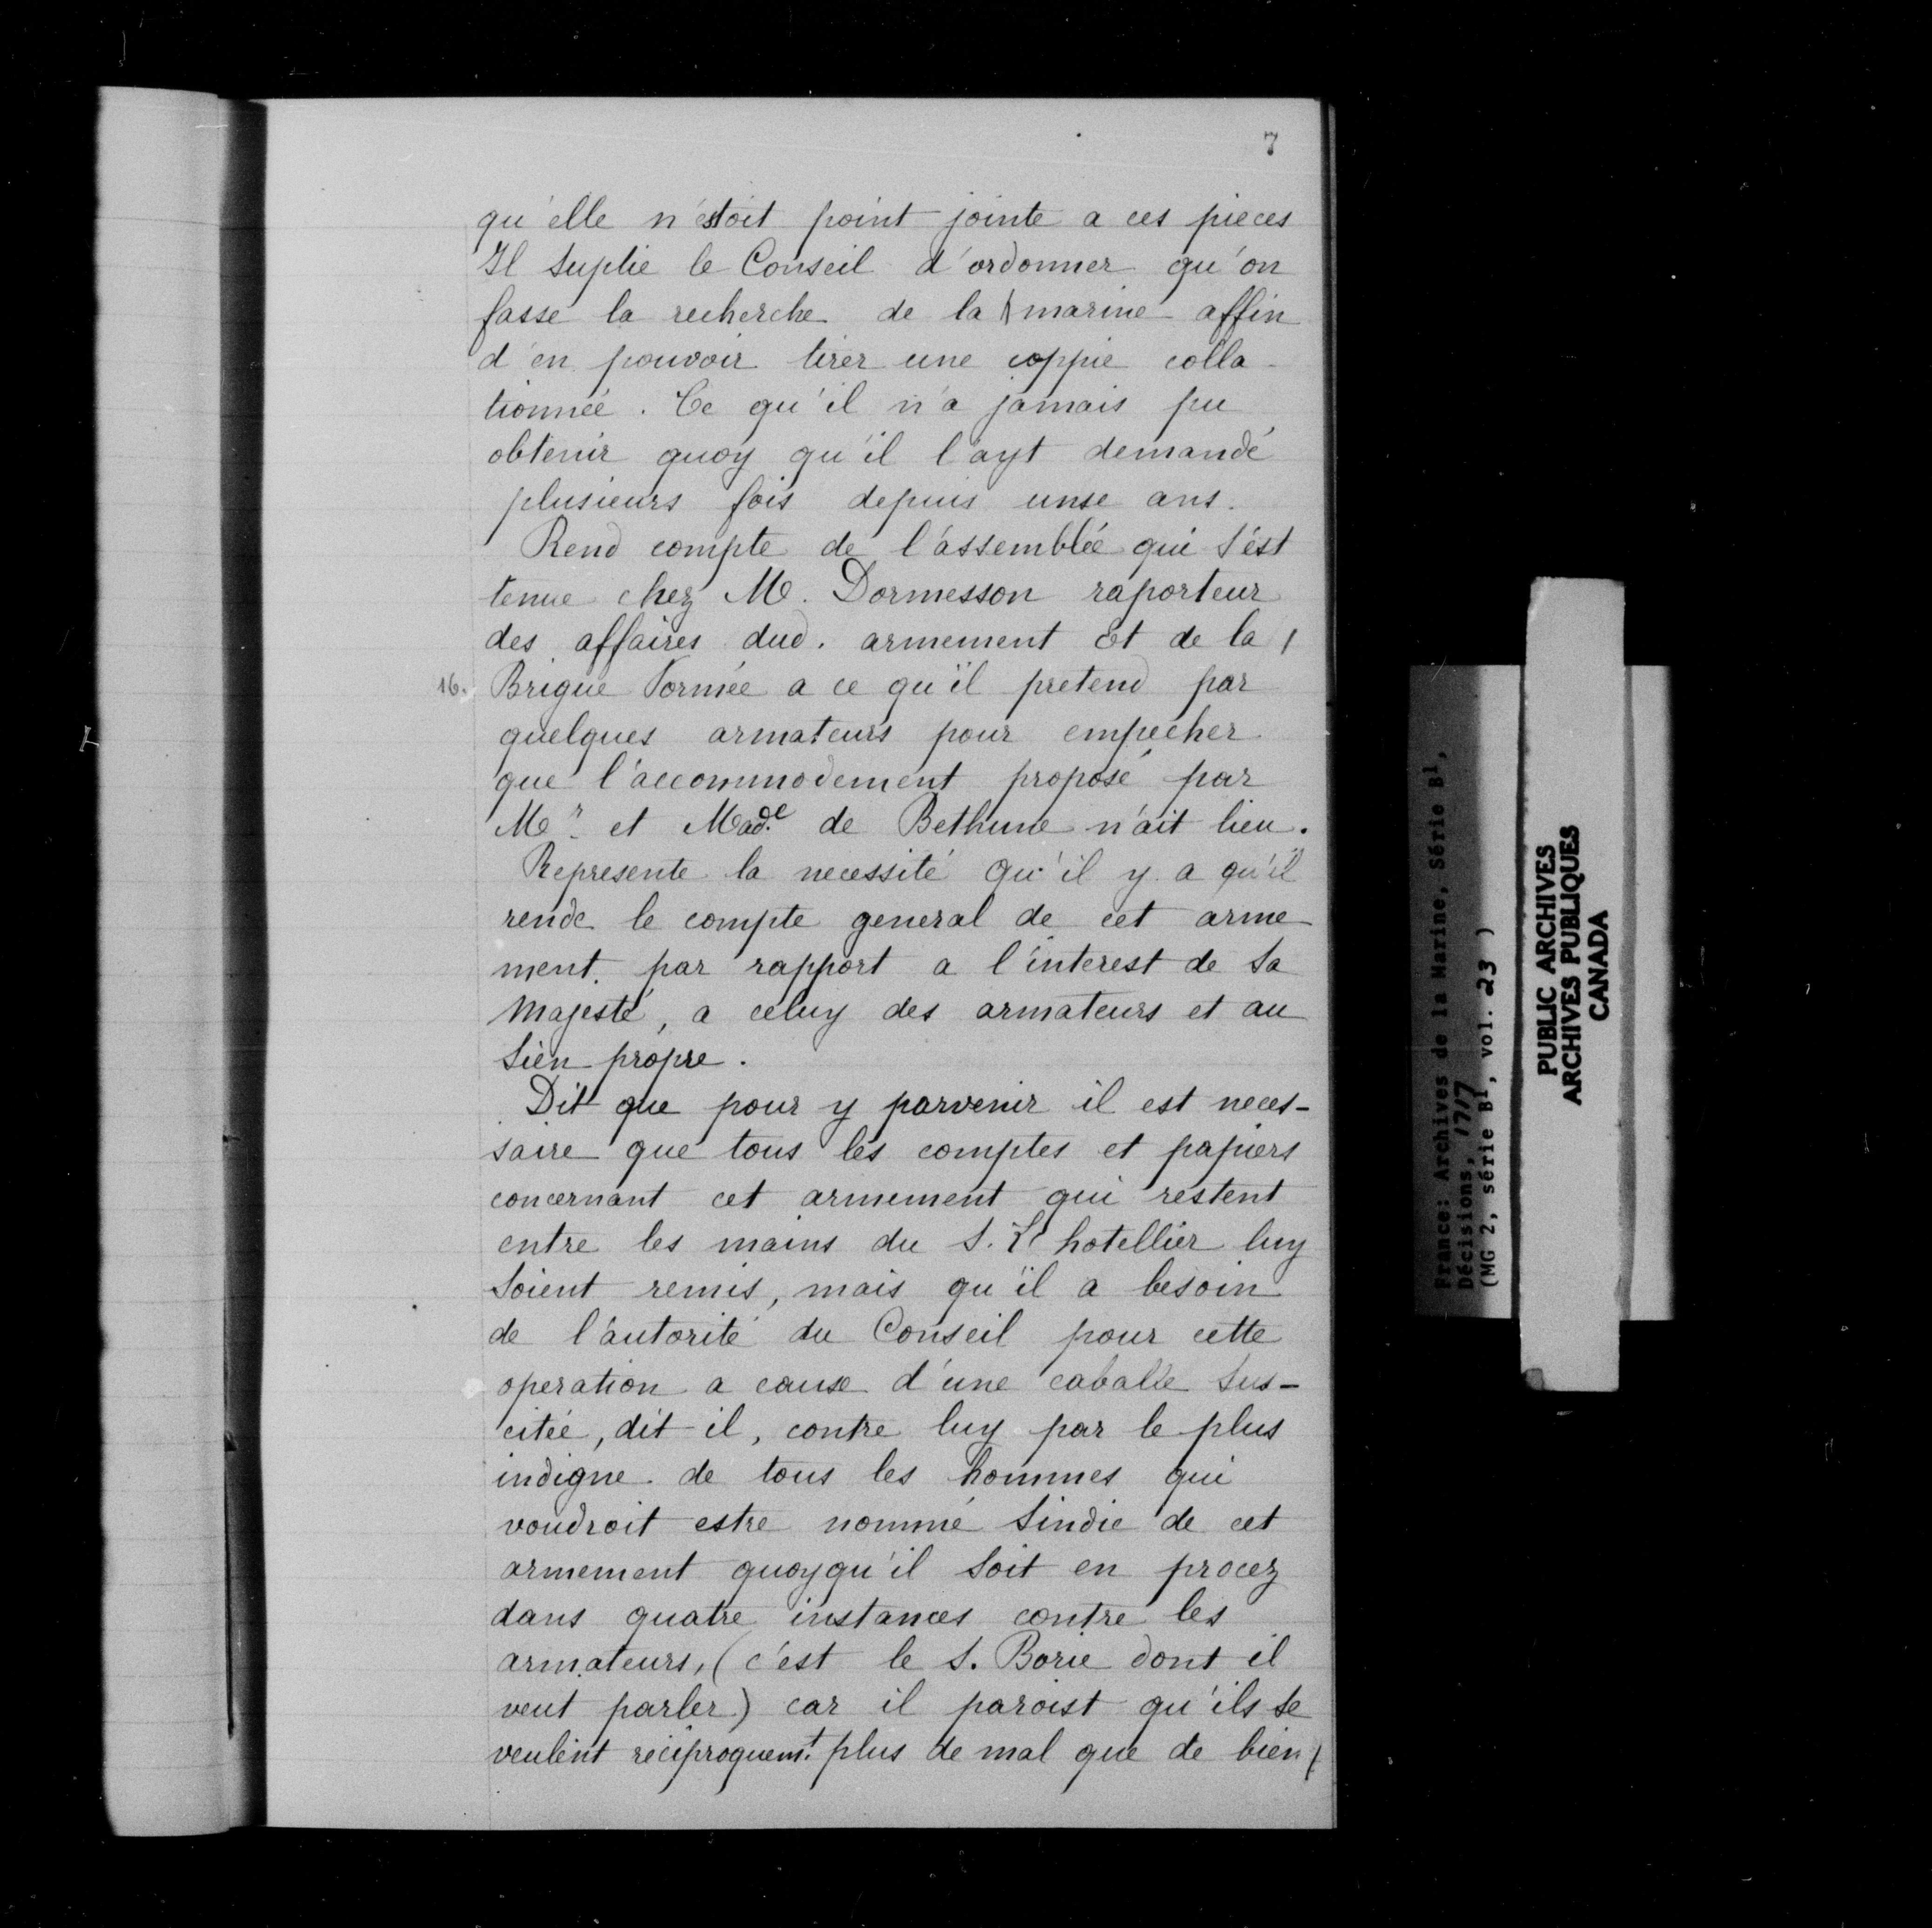 7
qu'elle n'estoit point jointe a ces pieces
Il suplie le Conseil d'ordonner qu'on
fasse la recherche de la marine affin
d'en pouvoir tirer une coppie colla-
tionnée. Ce qu'il n'a jamais pu
obtenir quoy qu'il l'ayt demandé
plusieurs fois depuis unse ans.
Rend compte de l'assemblée qui s'est
tenue chez M. Dormesson raporteur
des affaires dud. armement et de la /
16. Brigue formée a ce qu'il pretend par
quelques armateurs pour empecher
que l'accommodement proposé par
Mr. et Made. de Bethune n'ait lieu.
Represente la necessité qu'il y a qu'il
rende le compte general de cet arme
ment par rapport a l'interest de sa
Majesté, a celuy des armateurs et au
sien propre.
Dit que pour y parvenir il est neces-
saire que tous les comptes et papiers
concernant cet armement qui restent
entre les mains du S. L'hotellier luy
soient remis, mais qu'il a besoin
de l'autorité du Conseil pour cette
operation a cause d'une caballe sus-
citée, dit-il, contre luy par le plus
indigne de tous les hommes qui
voudroit estre nommé sindic de cet
armement quoyqu'il soit en procez
dans quatre instances contre les
armateurs, (c'est le S. Borie dont il
veut parler) car il paroist qu'ils se
veulent reciproquemt. plus de mal que de bien /
France: Archives de la Marine, Série B1,
Décisions, 1717
(MG 2, série B1, vol. 23 )
PUBLIC ARCHIVES
ARCHIVES PUBLIQUES
CANADA